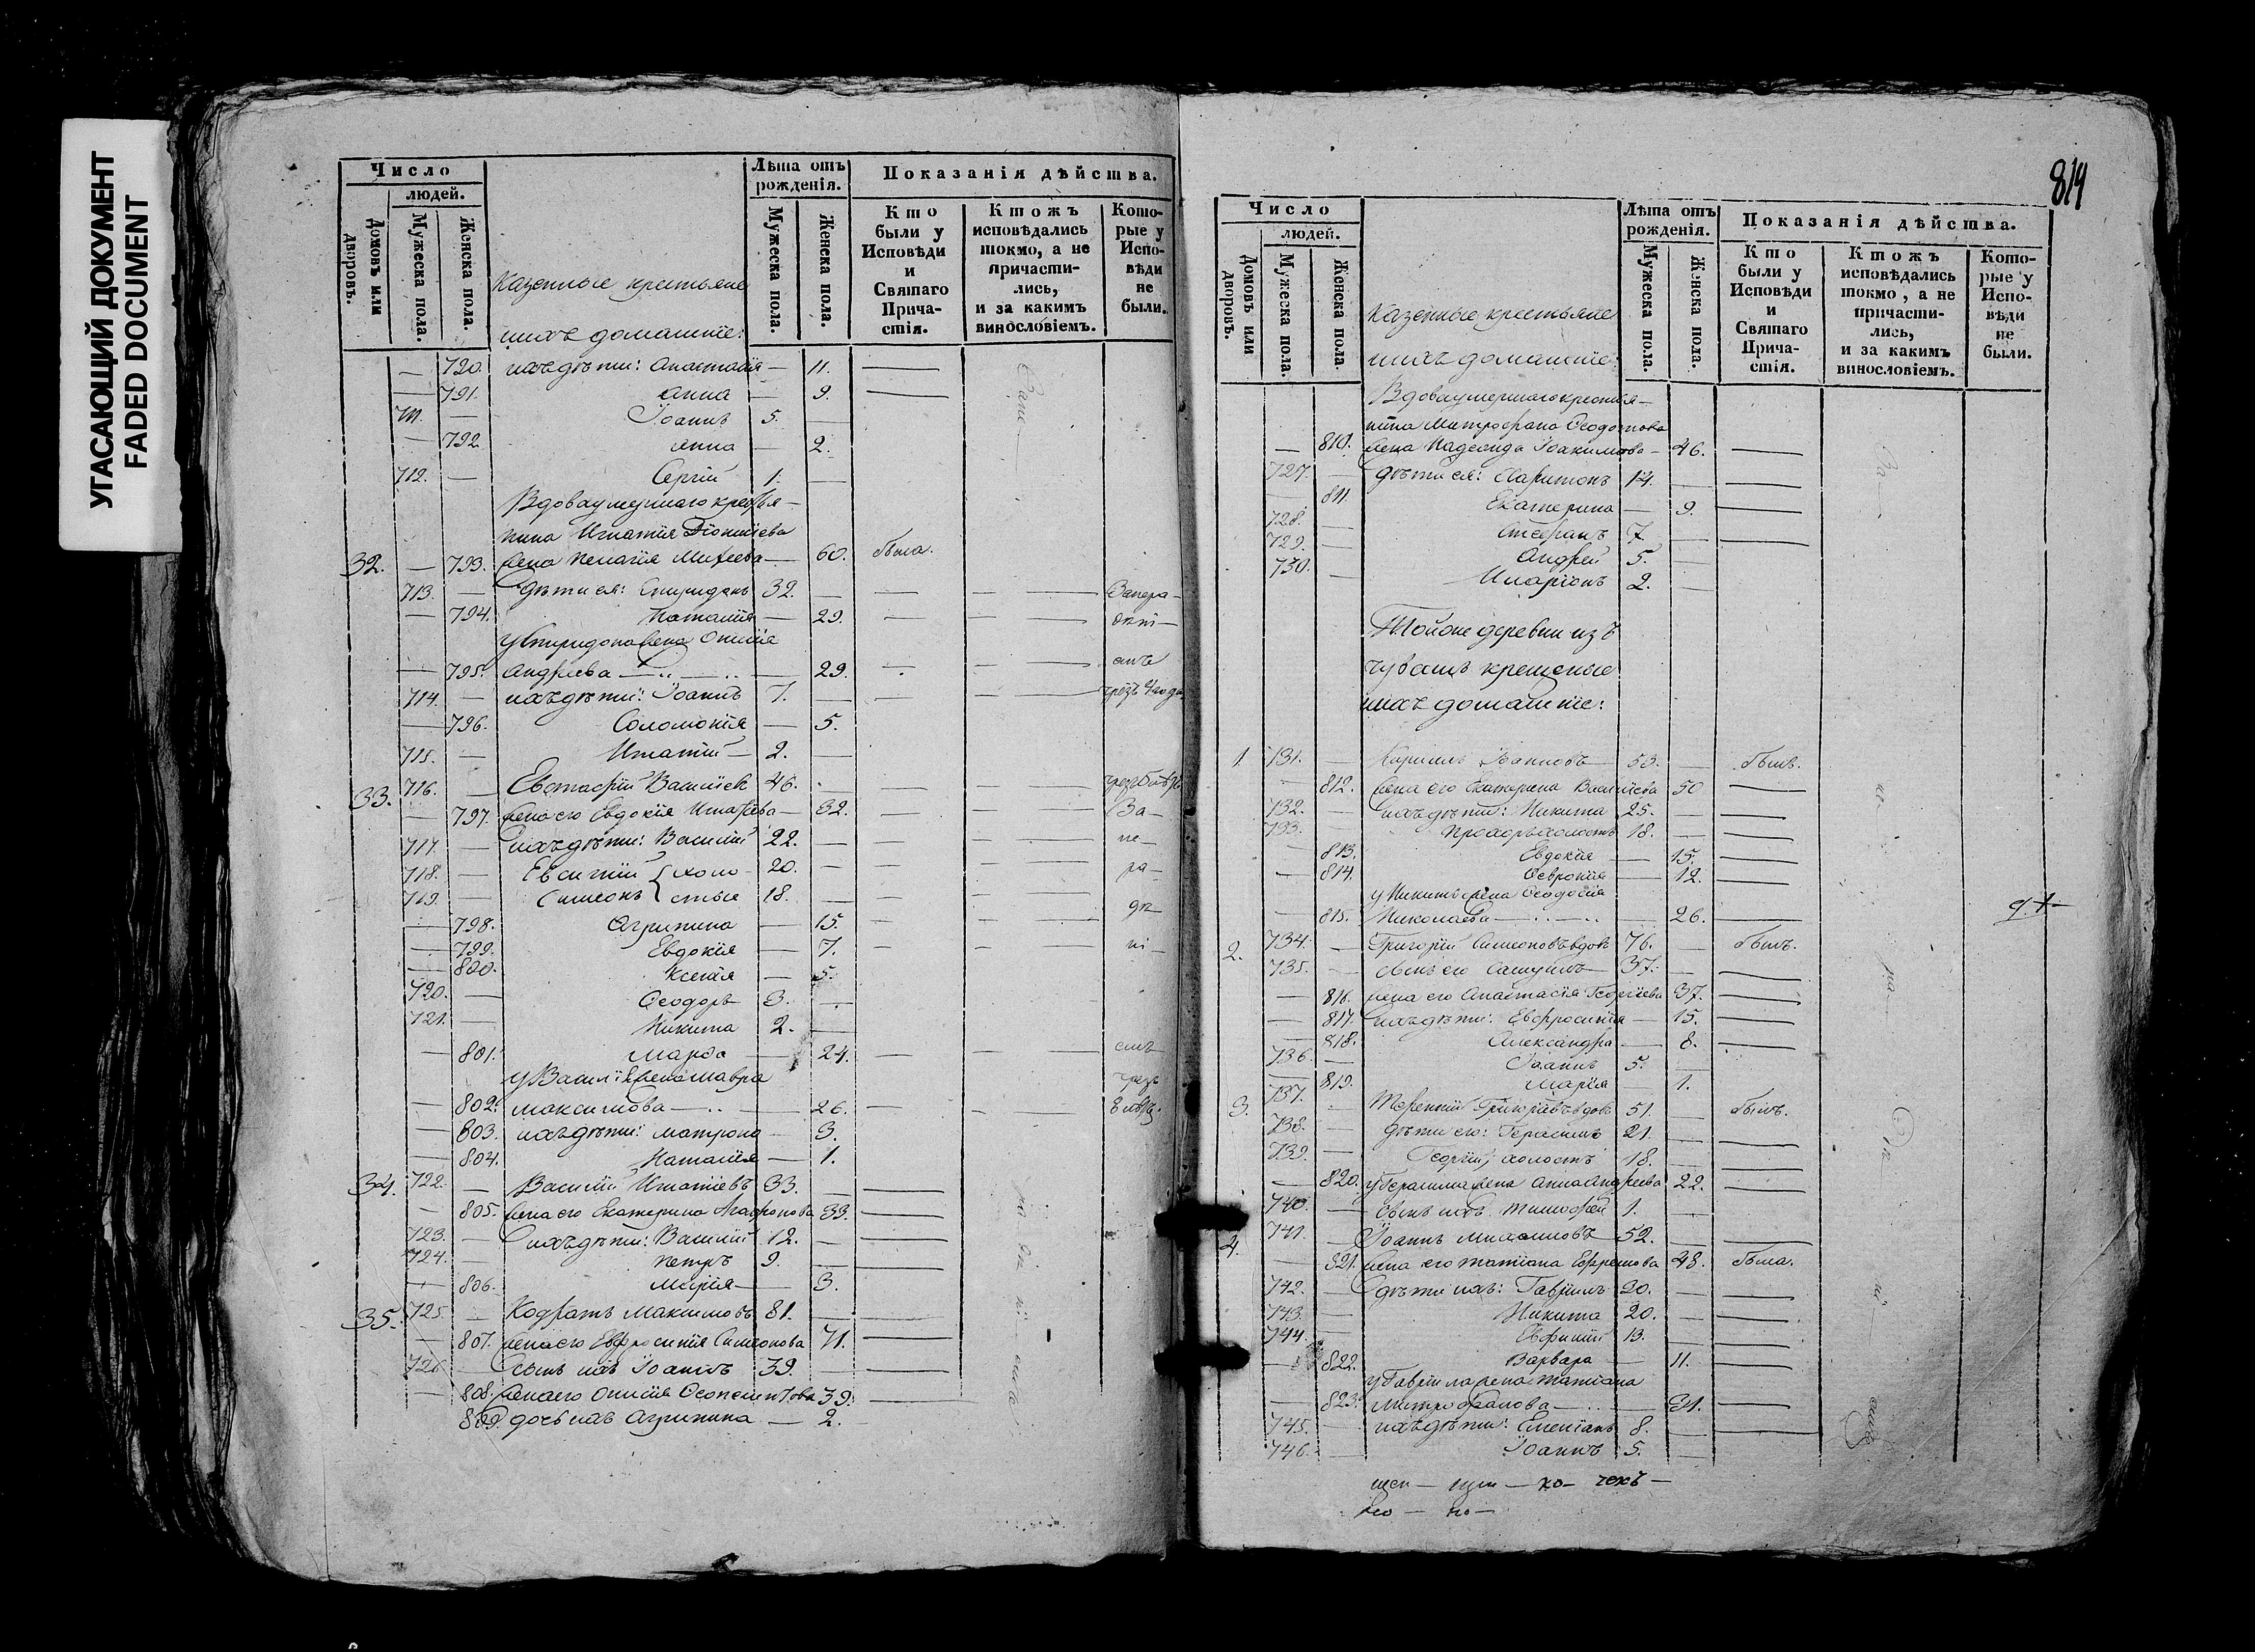 УГАСАЮЩИЙ ДОКУМЕНТ
FADED DOCUMENT
Число
людей.
Домовъ или дворовъ.
Мужеска пола.
Женска пола.
Казенные крестьяне
ихъ домашніе:
Лѣта отъ рожденія.
Мужеска пола.
Женска пола.
Показанія дѣйства.
Кто были у Исповѣди и Святаго Причастія.
Ктожъ исповѣдались токмо, а не причастились, и за какимъ винословіемъ.
Которые у Исповѣди не были.
— 790. ихъ дѣти: Анастасія — 11.
— 791. Анна — 9.
711. — Іоаннъ 5. —
— 792. Анна — 2.
712. — Сергій 1. —
Вдова умершаго крестья-
нина Игнатія Діонисіева
32. — 793. жена Пелагія Михеева — 60. была.
713. — Дѣти ея: Спиридонъ 32. —
— 794. Наталія — 29.
у Спиридона жена Ѳписія
— 795. Андреева — 29.
714. — ихъ дѣти: Іоаннъ 7. —
— 796. Соломонія — 5.
715. — Игнатій 2. —
33. 716. — Евстафій Василіев 46.
— 797. жена его Евдокія Игнатіева — 32.
717. — ихъ дѣти: Василій 22. —
718. — Евсигній холо- 20. —
719. — Симеонъ стые 18. —
— 798. Агрипина — 15.
— 799. Евдокія — 7.
— 800. Ксенія — 5.
720. — Ѳеодоръ 3. —
721. — Никита 2. —
— 801. Марѳа — 24.
у Василія жена Мавра
— 802. Максимова — 26.
— 803. ихъ дѣти: Матрона — 3.
— 804. Наталія — 1.
34. 722. — Василій Игнатіевъ 33. —
— 805. жена его Екатерина Агафонова 33.
723. — ихъ дѣти: Василій 12. —
724. — Петръ 9. —
— 806. Марія — 3.
35. 725. — Кодратъ Максимовъ 81. —
— 807. жена его Евфросинія Симеонова 71.
726. — Сынъ ихъ Іоаннъ 39. —
— 808. жена его 39.
809. дочь ихъ Агрипина — 2.
814
Число
людей.
Домовъ или дворовъ.
Мужеска пола.
Женска пола.
Казенные крестьяне
ихъ домашніе:
Лѣта отъ рожденія.
Мужеска пола.
Женска пола.
Показанія дѣйства.
Кто были у Исповѣди и Святаго Причастія.
Ктожъ исповѣдались токмо, а не причастились, и за какимъ винословіемъ.
Которые у Исповѣди не были.
Вдова умершаго крестья-
нина Митрофана Ѳеодотова
— 810. жена Надежда Іоакимова — 46.
727. — Дѣти ея: Харитонъ 14. —
— 811. Екатерина — 9.
728. — Стефанъ 7. —
729. — Андрей 5. —
730. — Иларіонъ 2. —
Тойже деревни изъ
чувашъ крещеные
ихъ домашніе:
1. 731. — Кириллъ Іоанновъ 53. — былъ.
— 812. жена его Екатерина Василіева 50
732. — ихъ дѣти: Никита 25. —
733. — Прохоръ холостъ 18. —
— 813. Евдокія — 15.
— 814. Ѳевронія — 12.
у Никиты жена Ѳеодосія
— 815. Николаева — 26.
2. 734. — Григорій Симеоновъ вдовъ 76. — былъ.
735. — Сынъ его Самуилъ 37. —
— 816. жена его Анастасія Георгіева 37.
— 817. ихъ дѣти: Евфросинія — 15.
— 818. Александра — 8.
736. — Іоаннъ 5. —
— 819. Марія — 1.
3. 737. — Терентій Григоріевъ вдовъ 51. — былъ.
738. — Дѣти его: Герасимъ 21. —
739. — Георгій, холостъ 18. —
— 820. у Герасима жена Анна Андреева 22.
740. — Сынъ ихъ Тимофей 1. —
4. 741. — Іоаннъ Михаиловъ 52. —
— 821. жена его Татіана Ефремова 48. была.
742. — Дѣти ихъ: Гавріилъ 30. —
743. — Никита 20. —
744. — Евфимій 13. —
— 822. Варвара — 11.
у Гавріила жена Татіана
— 823. Митрофанова — 31.
745. — ихъ дѣти: Емеліанъ 8. —
746. — Іоаннъ 5. —